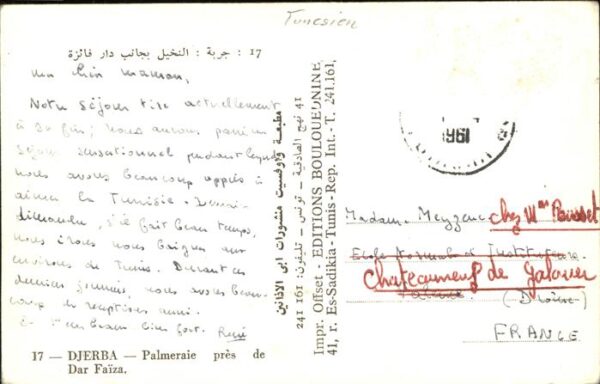 Tunesien
17 : جربة : النخيل بجانب دار فائزة
ma chère maman,
Notre séjour tire actuellement
à sa fin; nous aurons passé un
séjour sensationnel pendant lequel
nous avons beaucoup appris à
aimer la Tunisie. Demain
dimanche, s'il fait beau temps,
nous irons nous baigner aux
environs de Tunis. Durant ces
derniers journées, nous avons beau-
coup de réceptions aussi.
bien fort. René
17 — DJERBA — Palmeraie près de
Dar Faïza.
مطبعة واوفسيت منشورات ابى الاذانين
41 نهج الصادقية - تونس - تليفون: 161 241
Impr. Offset - EDITIONS BOULOUEDNINE
41, r. Es-Sadikia-Tunis-Rep. Int.-T. 241.161,
1961
Madame Meyzenc chez Mme Pousset
Ecole Normale d'Institutrices
Chateauneuf de Galaure
(Drôme)
FRANCE